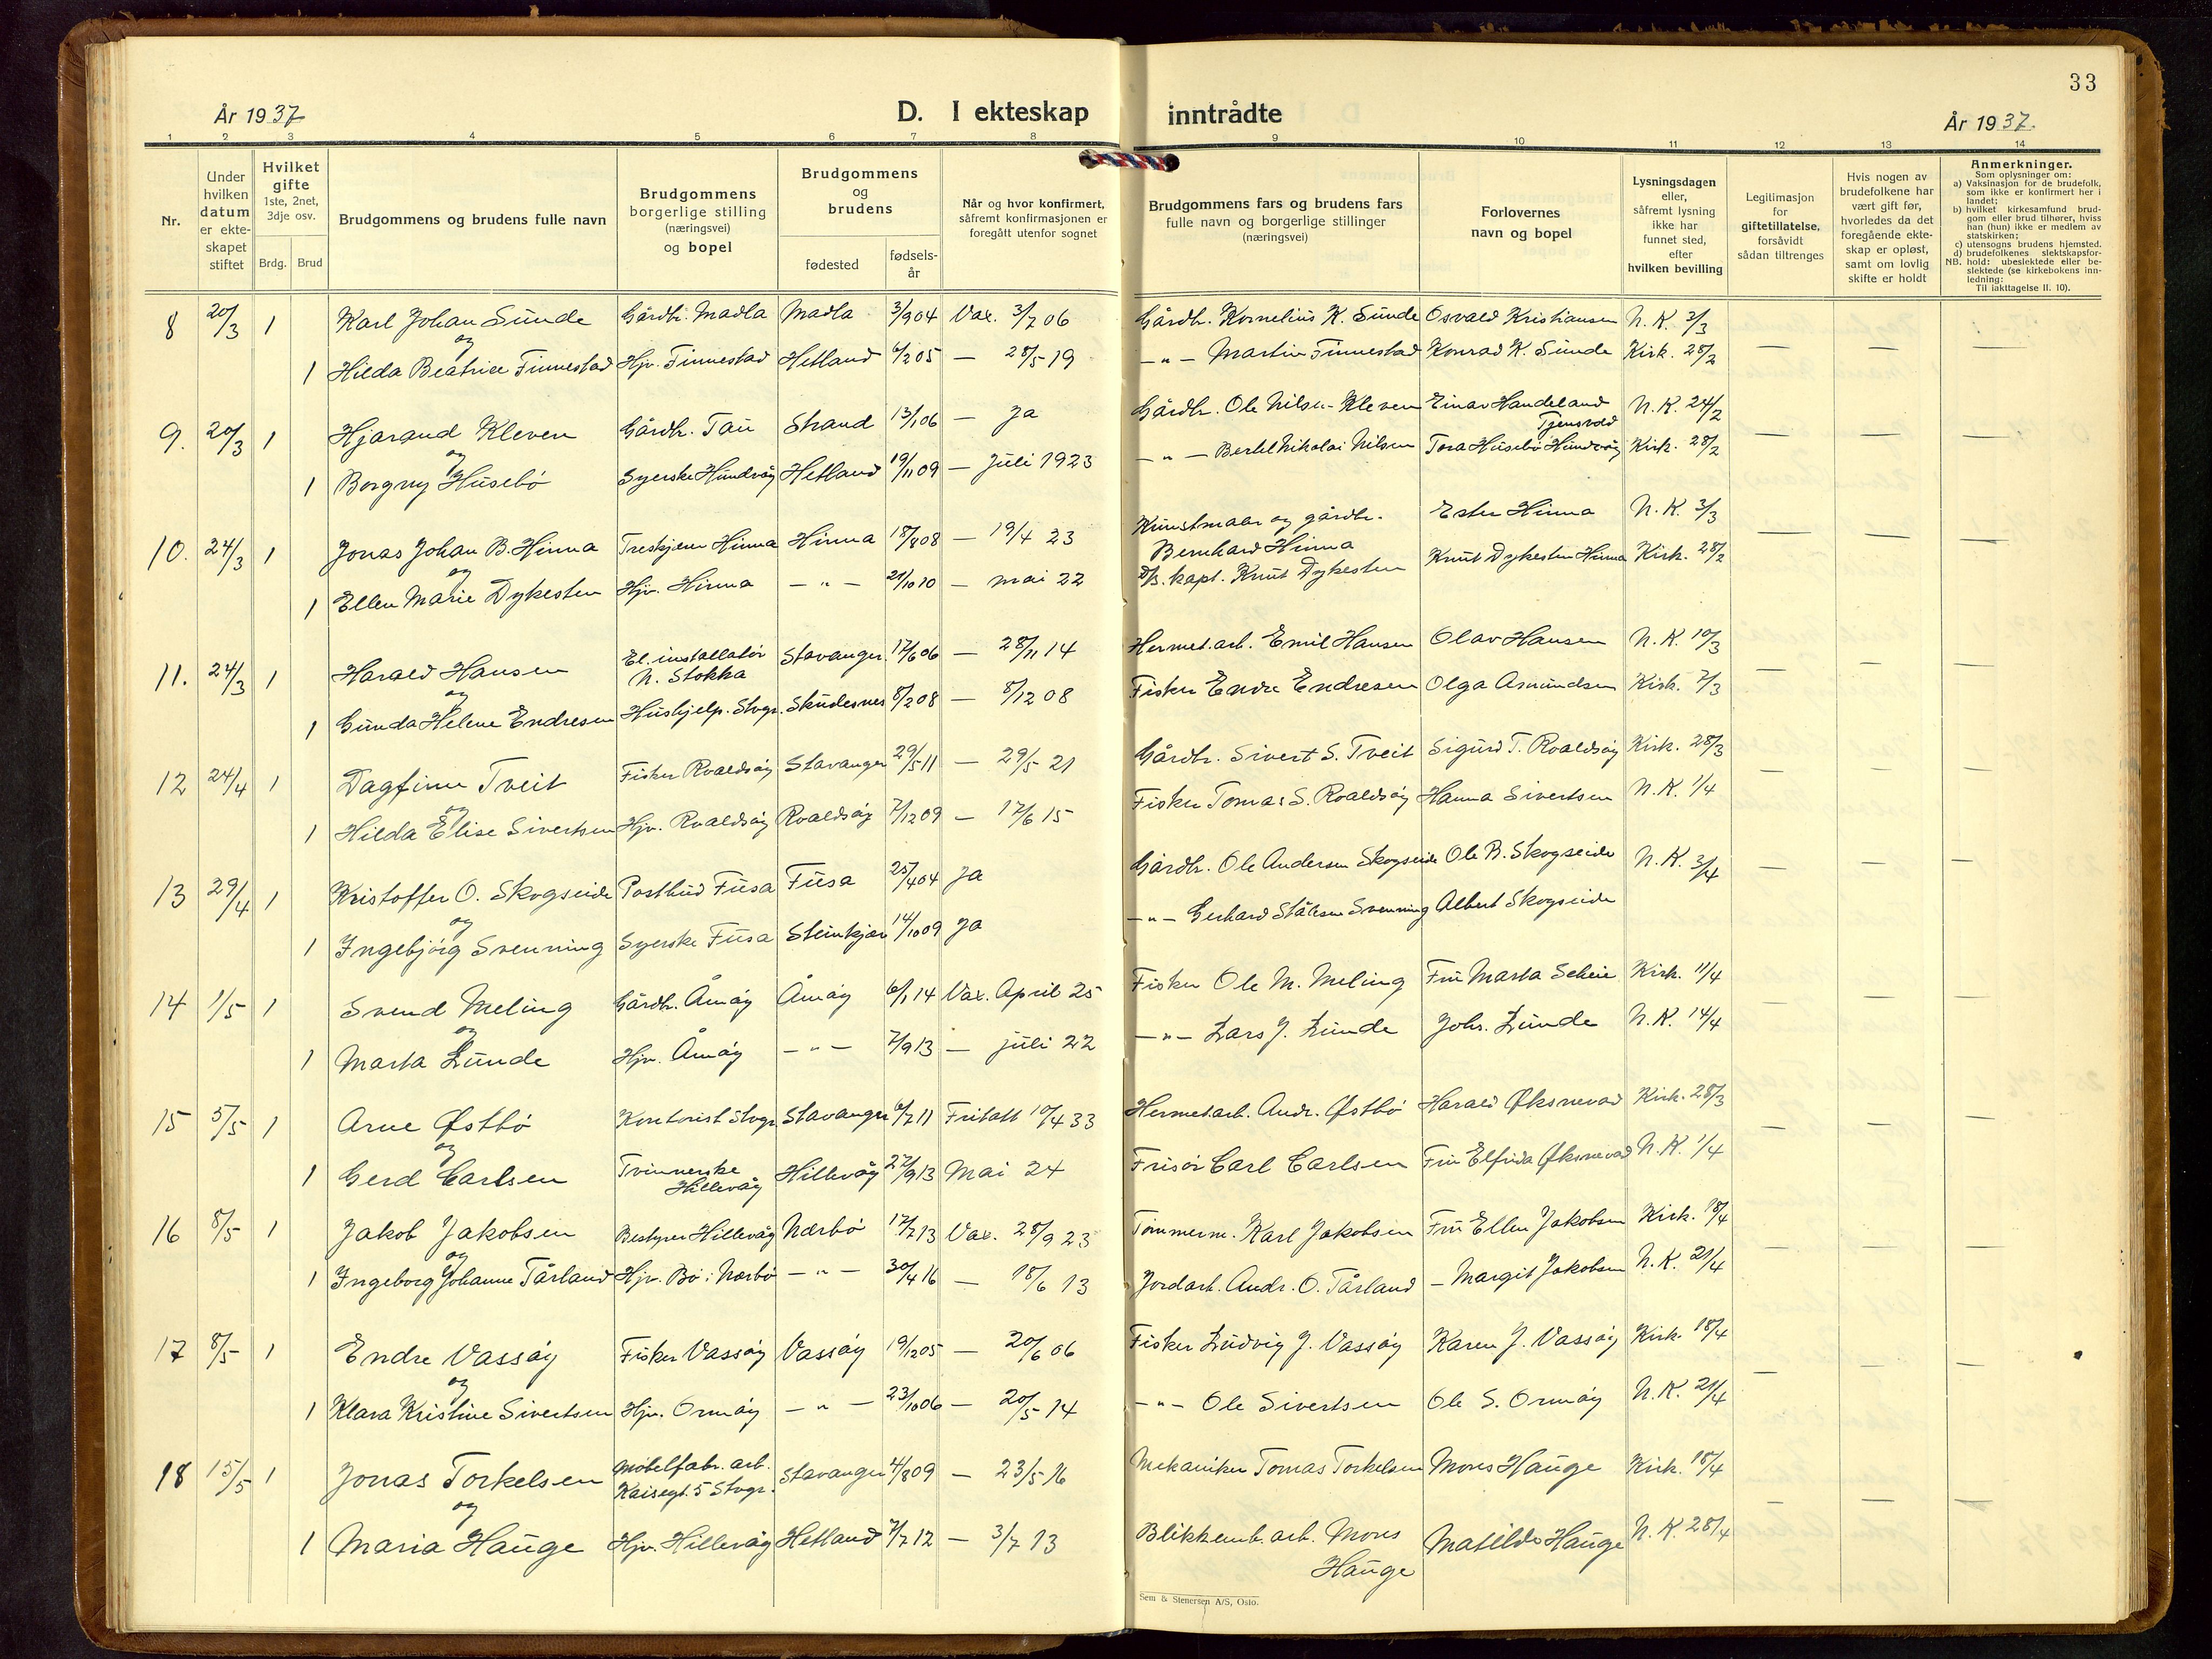 33
År 1937
D. I ekteskap inntrådte
År 1937.
1 2 3 4 5 6 7 8 9 10 11 12 13 14
Nr.
Under hvilken datum er ekte-skapet stiftet
Hvilket gifte 1ste, 2net, 3dje osv.
Brdg. Brud
Brudgommens og brudens fulle navn
Brudgommens borgerlige stilling (næringsvei) og bopel
Brudgommens og brudens
fødested
fødsels-år
Når og hvor konfirmert, såfremt konfirmasjonen er foregått utenfor sognet
Brudgommens fars og brudens fars fulle navn og borgerlige stillinger (næringsvei)
Forlovernes navn og bopel
Lysningsdagen eller, såfremt lysning ikke har funnet sted, efter hvilken bevilling
Legitimasjon for giftetillatelse, forsåvidt sådan tiltrenges
Hvis nogen av brudefolkene har vært gift før, hvorledes da det foregående ekte-skap er opløst, samt om lovlig skifte er holdt
Anmerkninger.
Som oplysninger om:
a) Vaksinasjon for de brudefolk, som ikke er konfirmert her i landet;
b) hvilket kirkesamfund brud-gom eller brud tilhører, hviss han (hun) ikke er medlem av statskirken;
c) utensogns brudens hjemsted.
d) brudefolkenes slektskapsfor-hold: ubeslektede eller be-slektede (se kirkebokens inn-ledning:
NB.
Til iakttagelse II. 10).
8 20/3 1 Karl Johan Sunde Gårdbr. Madla Madla 3/9 04 Vax. 3/7 06 Gårdbr. Kornelius K. Sunde Osvald Kristiansen N. K. 3/3
og
1 Hilda Beatrice Finnestad Hjv. Finnestad Hetland 6/2 05 — 28/5 19 —"— Martin Finnestad Konrad K. Sunde Kirk. 28/2
9. 20/3 1 Hjarand Kleven Gårdbr. Tau Strand 13/1 06 — ja Gårdbr. Ole Nilsen Kleven Einar Handeland Tjensvold N. K. 24/2
og
1 Borgny Husebö Syerske Hundvåg Hetland 19/11 09 — Juli 1923 —"— Bertel Nikolai Nilsen Tora Husebö Hundvåg Kirk. 28/2
10. 24/3 1 Jonas Johan B. Hinna Treskjærer Hinna Hinna 18/8 08 — 19/4 23 Kunstmaler og gårdbr. Bernhard Hinna Ester Hinna N. K. 3/3
og
1 Ellen Marie Dykesten Hjv. Hinna —"— 21/10 10 — mai 22 D/s. kapt. Knut Dykesten Knut Dykesten Hinna Kirk. 28/2
11. 24/3 1 Harald Hansen El. installatör N. Stokka Stavanger. 17/6 06 — 28/11 14 Hermet. arb. Emil Hansen Olav Hansen N. K. 10/3
og
1 Gunda Helene Endresen Hushjelp. Stvgr. Skudesnes 8/2 08 — 8/12 08 Fisker Endre Endresen Olga Asmundsen Kirk. 7/3
12 24/4 1 Dagfinn Tveit Fisker Roaldsöy Stavanger 29/5 11 — 29/5 21 Gårdbr. Sivert S. Tveit Sigurd T. Roaldsöy Kirk. 28/3
og
1 Hilda Elise Sivertsen Hjv. Roaldsöy Roaldsöy 7/12 09 — 17/6 15 Fisker Tomas S. Roaldsöy Hanna Sivertsen N. K. 1/4
13 29/4 1 Kristoffer O. Skogseide Postbud Fusa Fusa 25/4 04 ja Gårdbr. Ole Andersen Skogseide Ole B. Skogseide N. K. 3/4
og
1 Ingebjörg Svenning Syerske Fusa Steinkjær 14/10 09 ja —"— Gerhard Stålesen Svenning Albert Skogseide
14 1/5 1 Svend Meling Gårdbr. Åmöy Åmöy 6/1 14 Vax. April 25 Fisker Ole M. Meling Fru Marta Scheie Kirk. 11/4
og
1 Marta Lunde Hjv. Åmöy —"— 7/9 13 — juli 22 —"— Lars J. Lunde Johs. Lunde N. K. 14/4
15 5/5 1 Arne Østbö Kontorist Stvgr Stavanger 6/7 11 Fritatt 10/4 33 Hermet. arb. Andr. Østbö Harald Øksnevad Kirk. 28/3
og
1 Gerd Carlsen Tvinnerske Hillevåg Hillevåg 27/9 13 Mai 24 Frisör Carl Carlsen Fru Elfrida Øksnevad N. K. 1/4
16 8/5 1 Jakob Jakobsen Bestyrer Hillevåg Nærbö 17/7 13 Vax. 28/9 23 Tömmerm. Karl Jakobsen Fru Ellen Jakobsen Kirk. 18/4
og
1 Ingeborg Johanne Tårland Hjv. Bö i Nærbö —"— 30/4 16 — 18/6 13 Jordarb. Andr. O. Tårland — Margit Jakobsen N. K. 21/4
17 8/5 1 Endre Vassöy Fisker Vassöy Vassöy 19/12 05 — 20/6 06 Fisker Ludvig J. Vassöy Karen J. Vassöy Kirk. 18/4
og
1 Klara Kristine Sivertsen Hjv. Ormöy —"— 23/10 06 — 20/5 14 —"— Ole Sivertsen Ole S. Ormöy N. K. 21/4
18 15/5 1 Jonas Torkelsen Möbelfabr. arb. Kaisegt. 5 Stvgr. Stavanger 4/8 09 — 23/5 16 Mekaniker Tomas Torkelsen Mons Hauge Kirk. 18/4
og
1 Maria Hauge Hjv. Hillevåg Hetland 7/7 12 — 3/7 13 Blikkemb. arb. Mons Hauge Matilde Hauge N. K. 28/4
Sem & Stenersen A/S, Oslo.